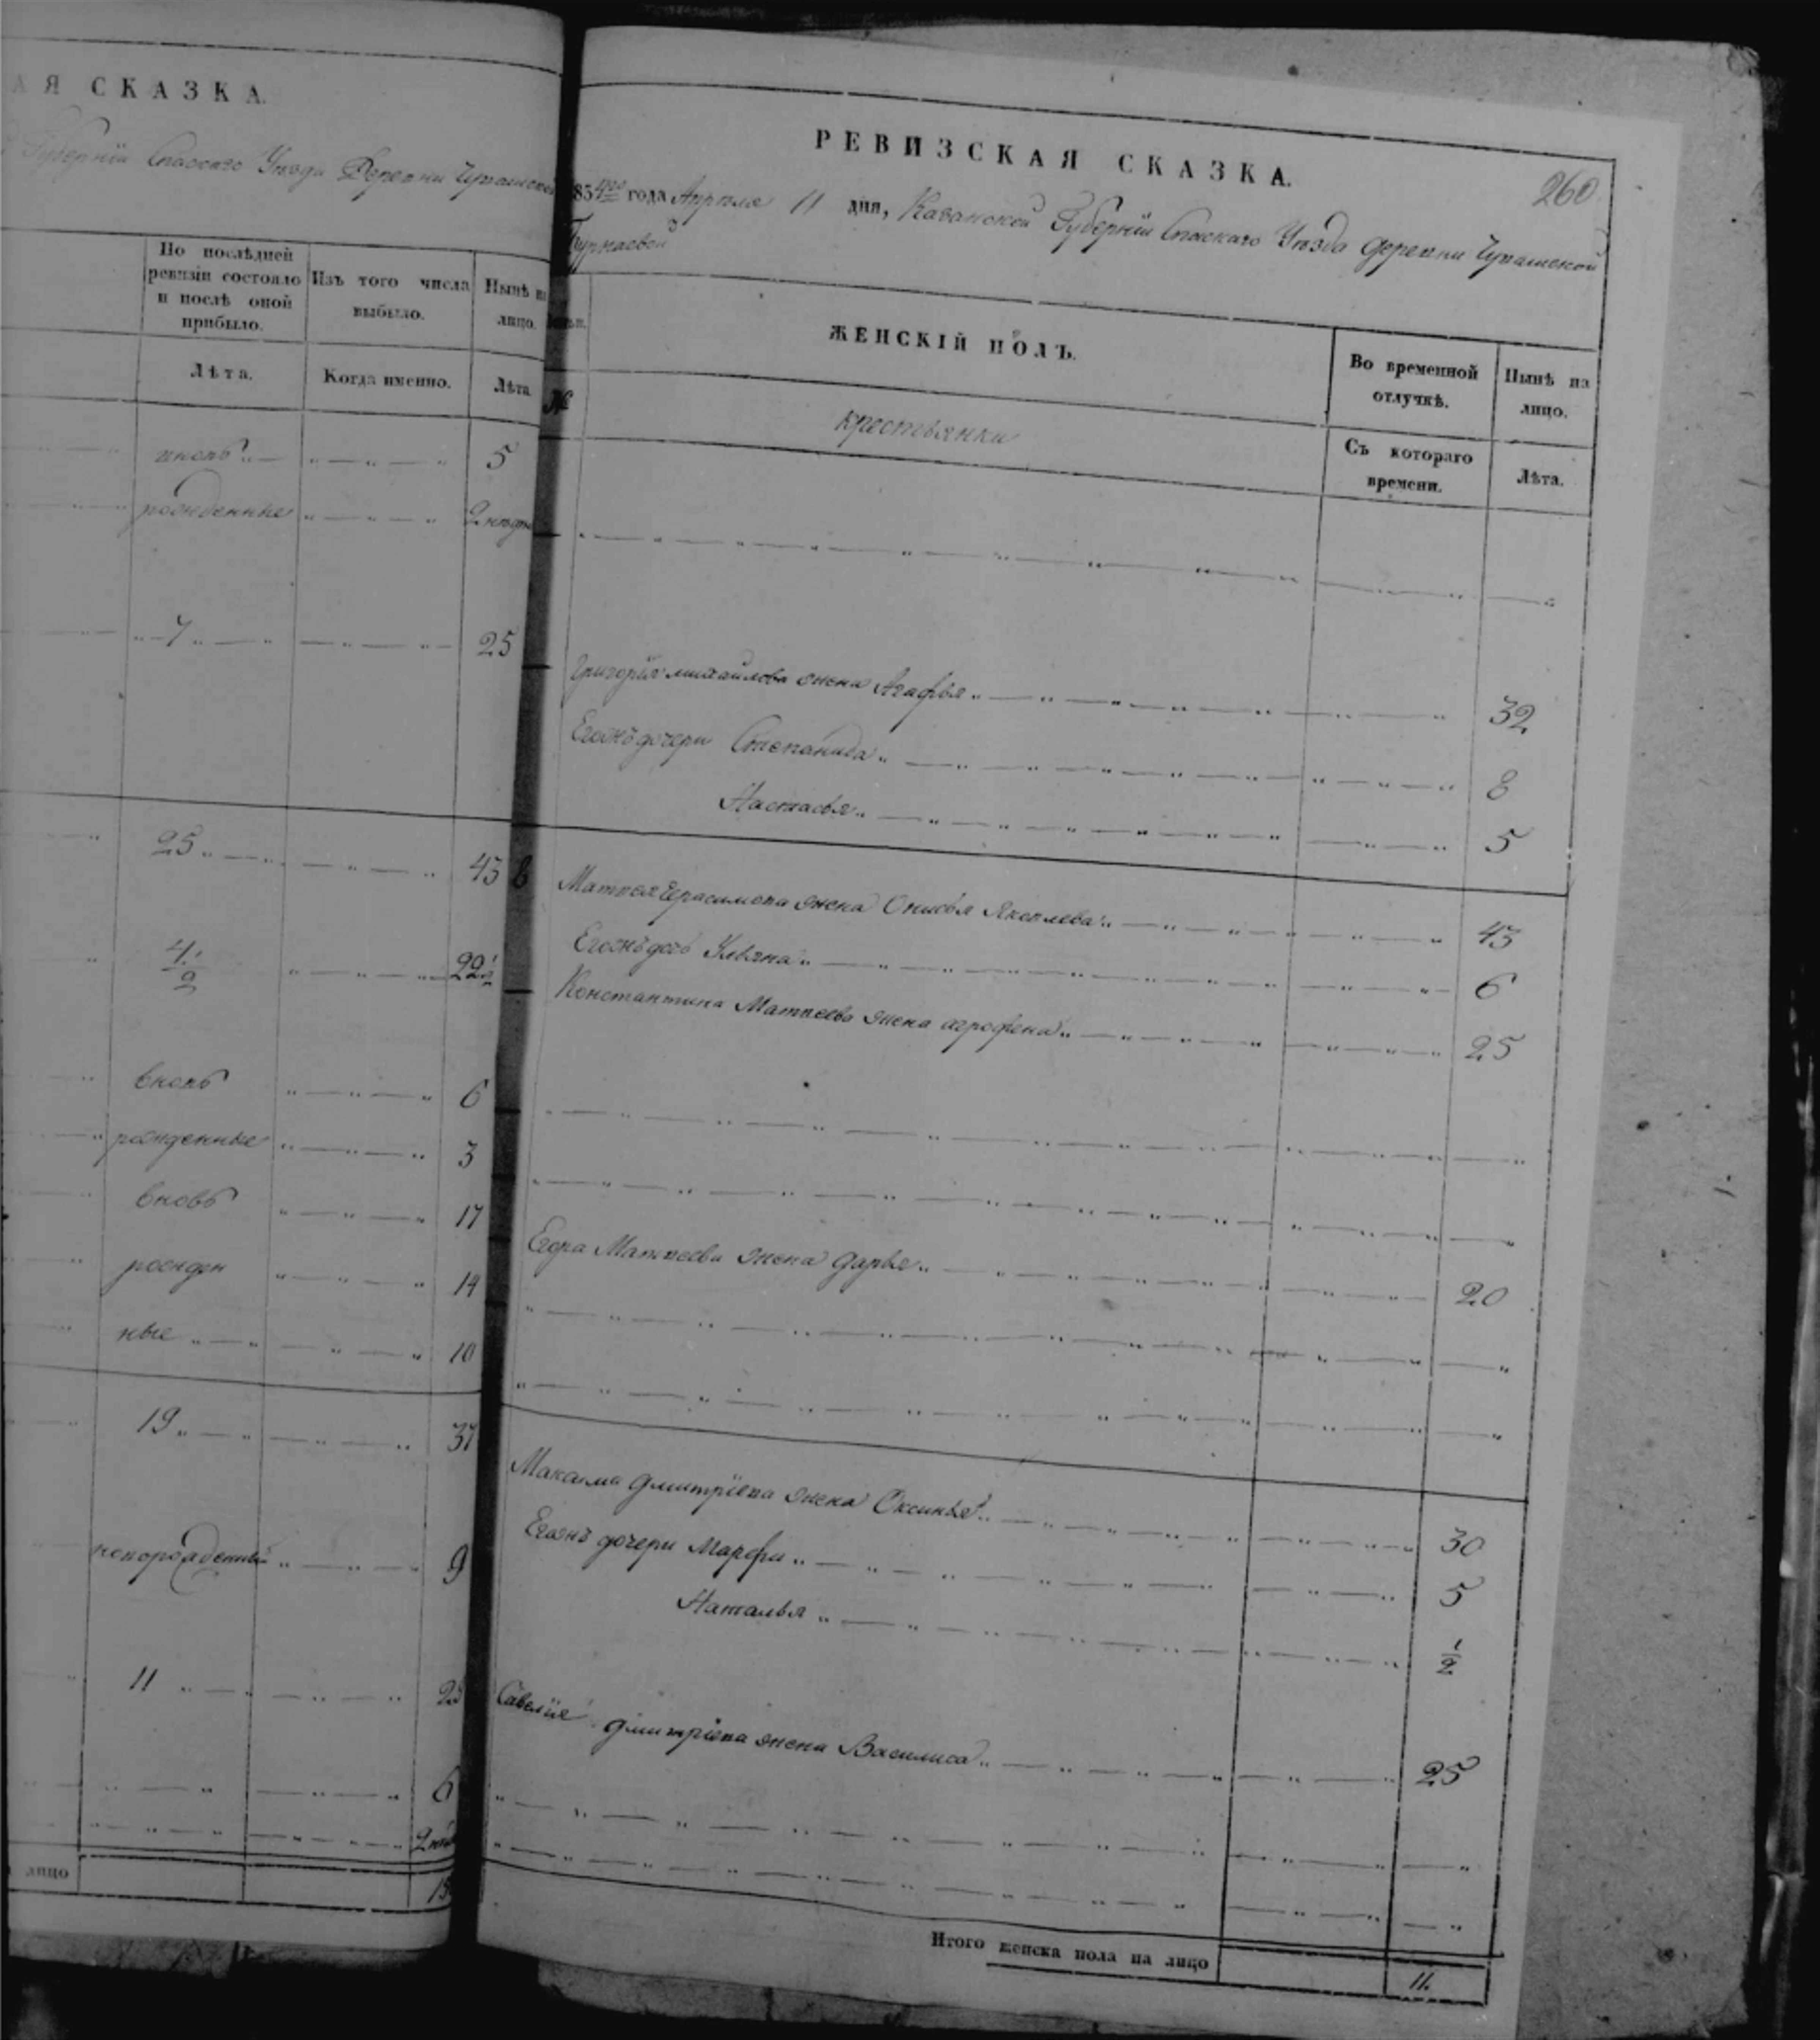 АЯ СКАЗКА.
Губернiи Спаскаго Уѣзда Деревни Чувашской
По послѣдней ревизiи состояло и послѣ оной прибыло.
Изъ того числа выбыло.
Нынѣ на лицо.
Лѣта.
Когда именно.
Лѣта
вновь 5
рожденные 2 недѣ
7 25
25 43
4 1/2 22 1/2
вновь 6
рожденные 3
вновь 17
рожден 14
ные 10
19 37
новорожденный 9
11 25
6
2 нед
лицо
15
РЕВИЗСКАЯ СКАЗКА.
260
850го года Апрѣля 11 дня, Казанской Губернiи Спаскаго Уѣзда деревни Чувашской
Бурнаевой
ЖЕНСКIЙ ПОЛЪ.
Во временной отлучкѣ.
Нынѣ на лицо.
№
крестьянки
Съ котораго времени.
Лѣта.
Григорiя михайлова жена Агафья 32
Егожъ дочери Степанида 8
Настасья 5
8 Матвея Герасимова жена Онисья Яковлева 43
Егожъ дочь Ульяна 6
Константина Матвеева жена агрофена 25
Егора Матвеева жена дарья 20
Максима дмитрiева жена Оксинья 30
Егожъ дочери Марфа 5
Наталья 1/2
Савелiя дмитрiева жена Василиса 25
Итого женска пола на лицо 11.